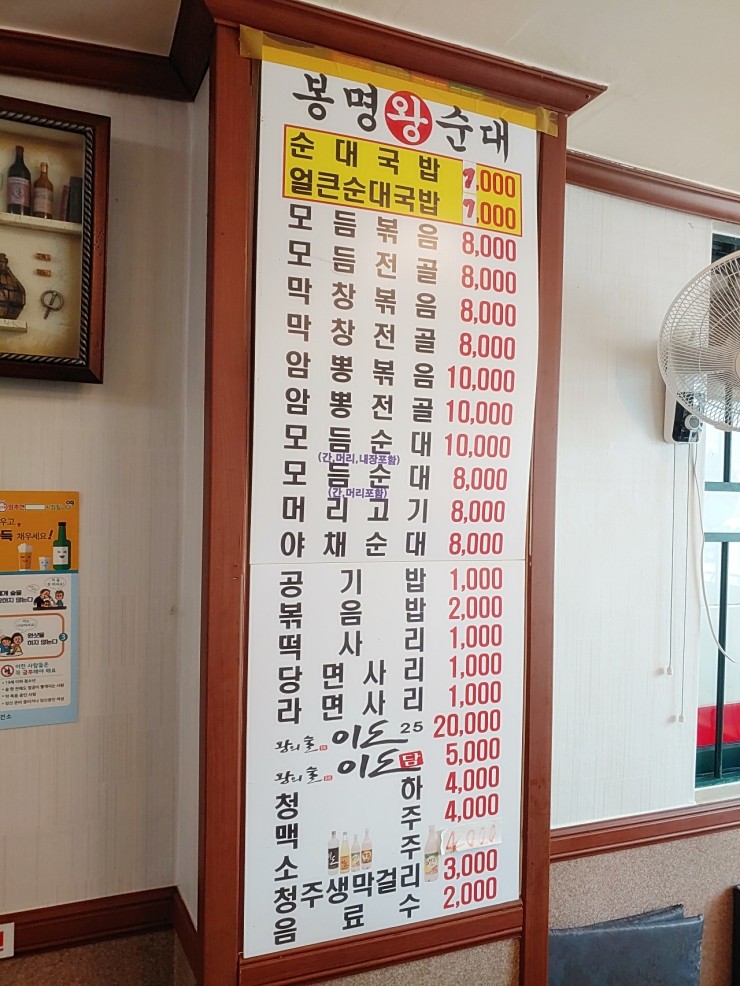 봉명왕순대
순대국밥 7,000
얼큰순대국밥 7,000
모듬볶음 8,000
모듬전골 8,000
막창볶음 8,000
막창전골 8,000
암뽕볶음 10,000
암뽕전골 10,000
모듬순대 10,000
(간,머리,내장포함)
모듬순대 8,000
(간,머리포함)
머리고기 8,000
야채순대 8,000
공기밥 1,000
볶음밥 2,000
떡사리 1,000
당면사리 1,000
라면사리 1,000
왕의술 이도 25 20,000
왕의술 이도 담 5,000
청하 4,000
맥주 4,000
소주 4,000
청주생막걸리 3,000
음료수 2,000
득 채우세요!
이런 사람들은
꼭 금주해야 해요